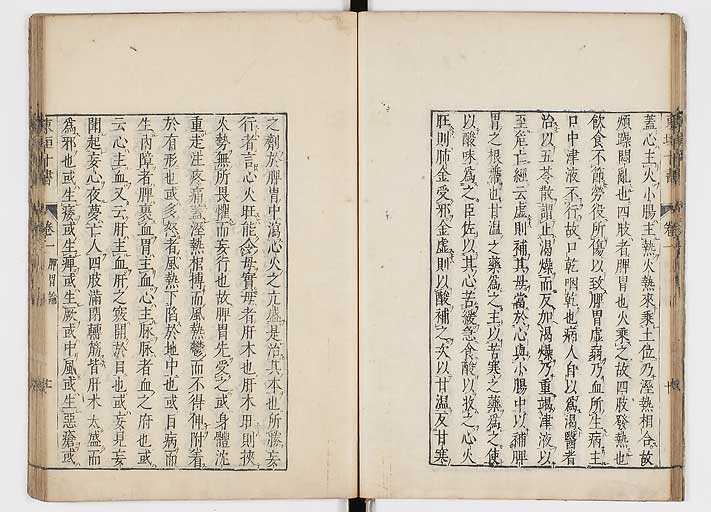 蓋心主火小腸主熱火熱來乘土位乃溼熱相合故
煩躁悶亂也四肢者脾胃也火乘之故四肢發熱也
飲食不節勞役所傷以致脾胃虛弱乃血所生病主
口中津液不行故口乾咽乾也病人自以為渴醫者
治以五苓散謂止渴燥而反加渴燥乃重竭津液以
至危亡經云虛則補其母當於心與小腸中以補脾
胃之根蔕也甘溫之藥為之主以苦寒之藥為之使
以酸味為之臣佐以其心苦緩急食酸以收之心火
旺則肺金受邪金虛則以酸補之次以甘溫及甘寒
東垣十書
卷一
之劑於脾胃中瀉心火之亢盛是治其本也所勝妄
行者言心火旺能令母實母者肝木也肝木旺則挾
火勢無所畏懼而妄行也故脾胃先受之或身體沈
重走注疼痛蓋溼熱相搏而風熱鬱而不得伸附著
於有形也或多怒者風熱下陷於地中也或目病而
生內障者脾裹血胃主血心主脉脉者血之府也或
云心主血又云肝主血肝之竅開於目也或妄見妄
聞起妄心夜夢亡人四肢滿閉轉筋皆肝木太盛而
為邪也或生痿或生痺或生厥或中風或生惡瘡或
東垣十書
卷一 脾胃論